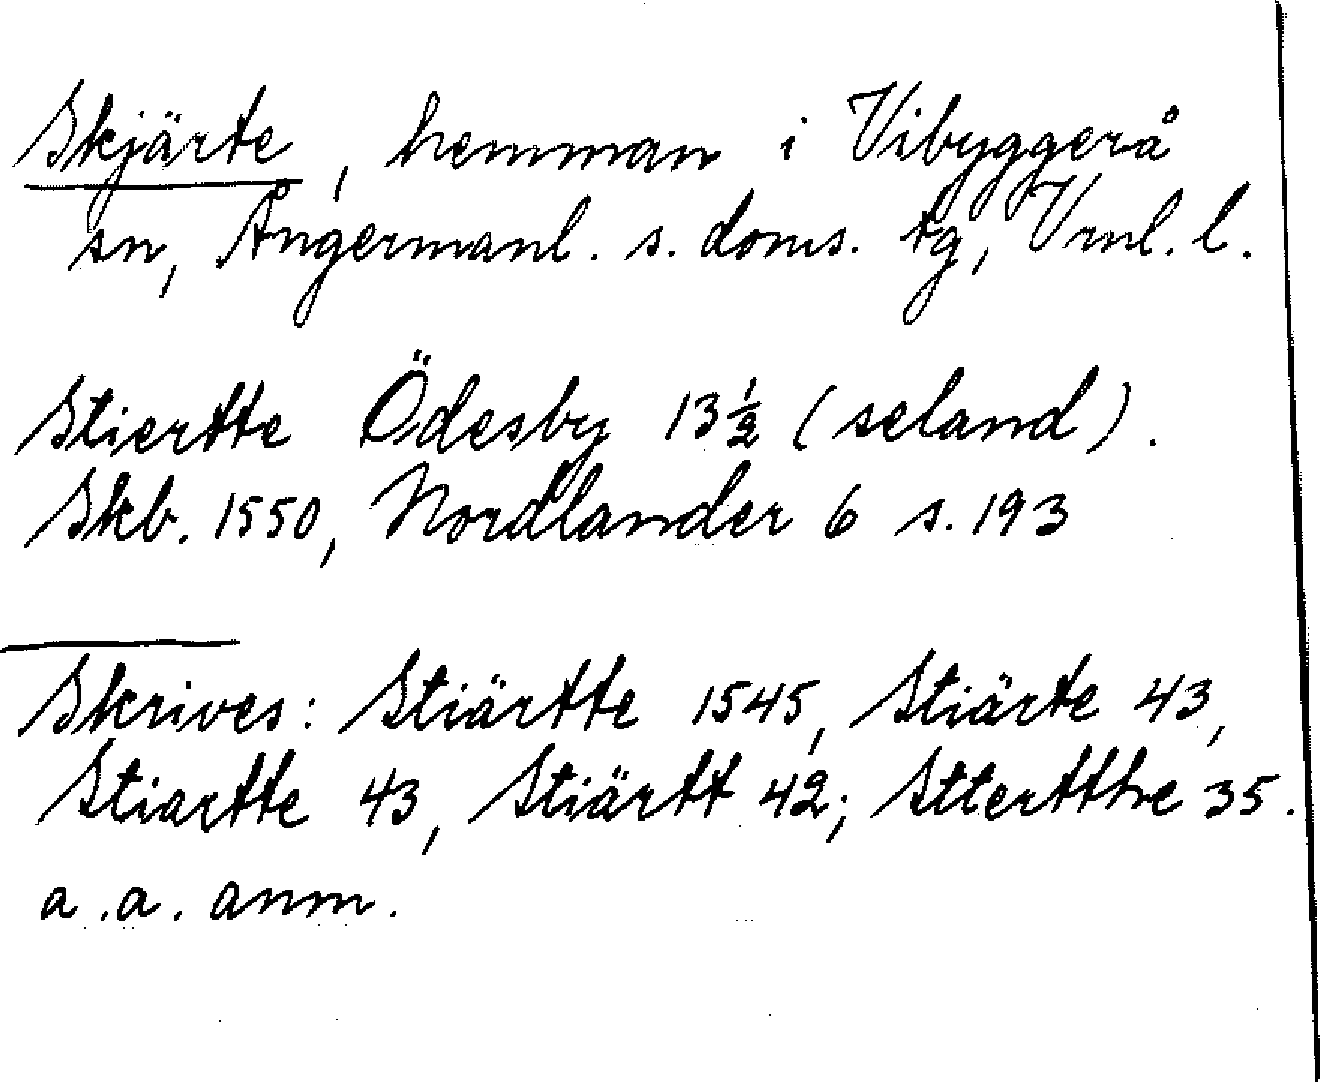 Skjärte, hemman i Vibyggerå
sn, Ångermanl. s. doms. tg, Vrnl. l.
Stiertte Ödesby 13½ (seland).
Skb. 1550, Nordlander 6 s. 193
Skrives: Stiärtte 1545, Stiärte 43,
Stiartte 43, Stiärtt 42; Sttertthe 35.
a.a. anm.